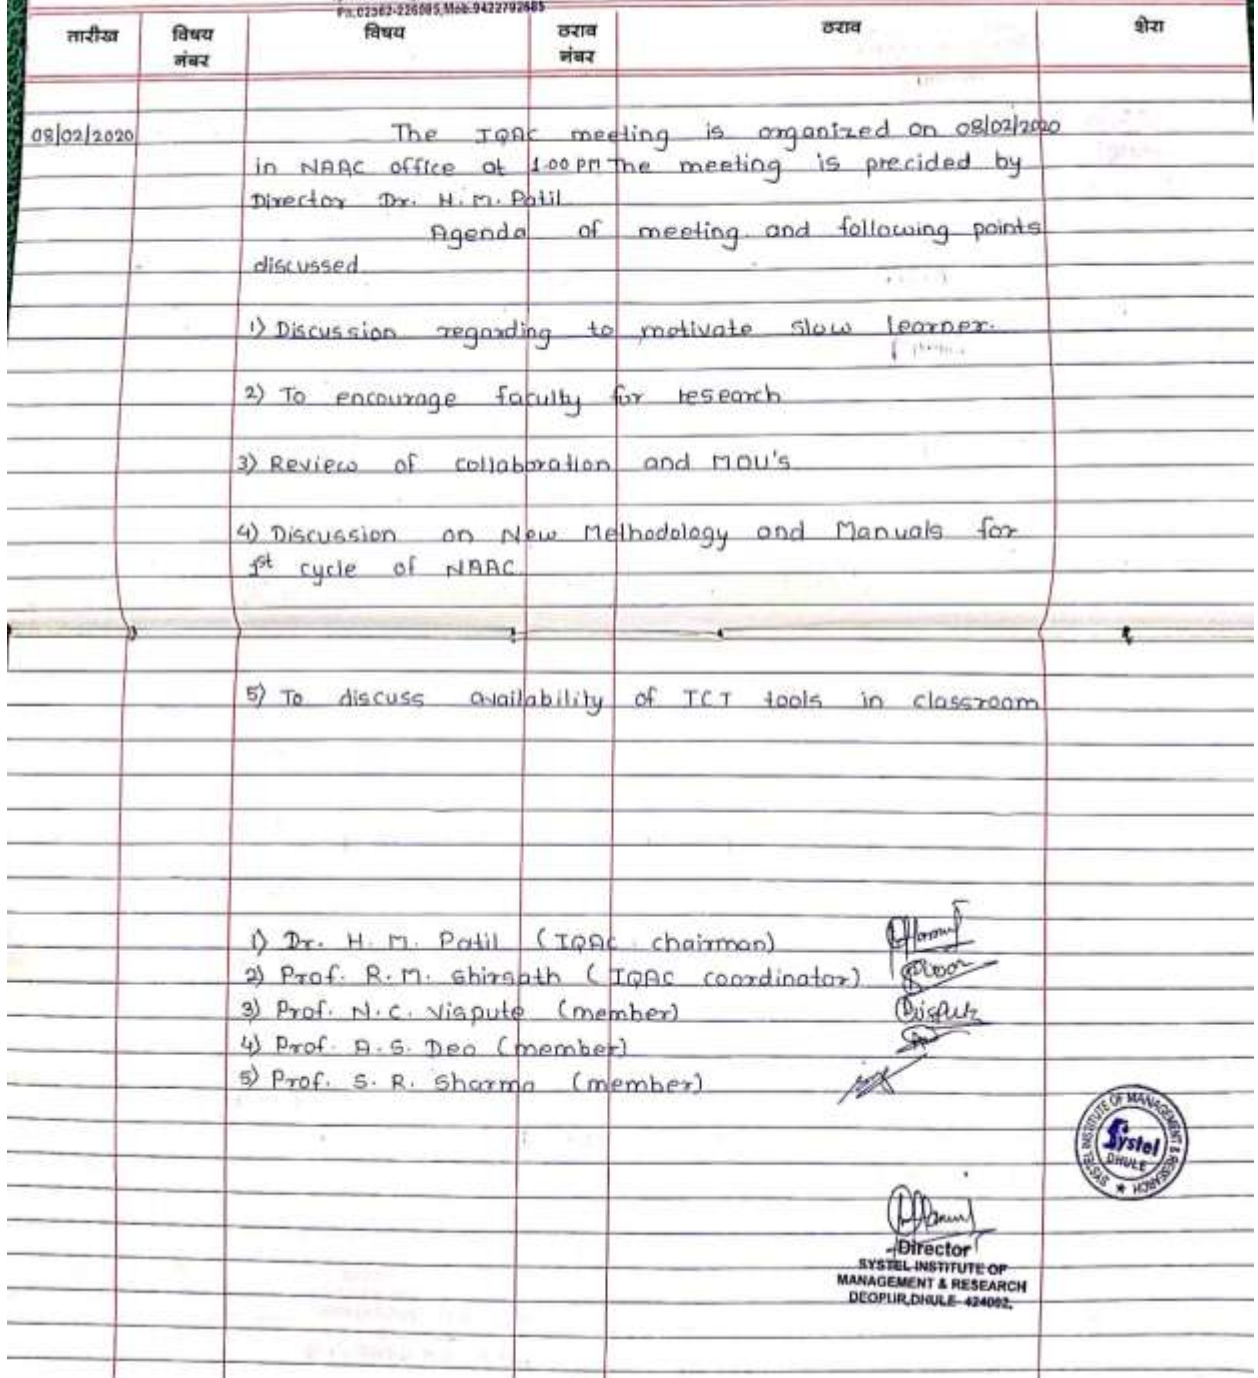 Ph.02562-226085,Mob.9422792685
तारीख विषय नंबर विषय ठराव नंबर ठराव शेरा
08/02/2020 The IQAC meeting is organized on 08/02/2020
in NAAC office at 1.00 PM The meeting is precided by
Director Dr. H. M. Patil
Agenda of meeting and following points
discussed
1) Discussion regarding to motivate slow learner.
2) To encourage faculty for research
3) Review of collaboration and MOU's
4) Discussion on New Methodology and Manuals for
1st cycle of NAAC
5) To discuss availability of ICT tools in classroom
1) Dr. H. M. Patil (IQAC chairman)
2) Prof. R. M. Shirsath (IQAC coordinator)
3) Prof. N. C. Vispute (member)
4) Prof. A. S. Deo (member)
5) Prof. S. R. Sharma (member)
SYSTEL INSTITUTE OF MANAGEMENT & RESEARCH
Systel
DHULE
Director
SYSTEL INSTITUTE OF
MANAGEMENT & RESEARCH
DEOPUR,DHULE- 424002.